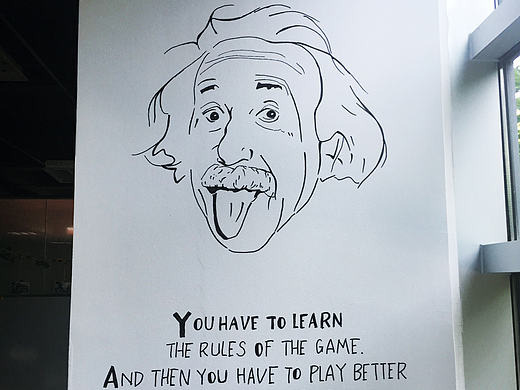 YOU HAVE TO LEARN
THE RULES OF THE GAME.
AND THEN YOU HAVE TO PLAY BETTER